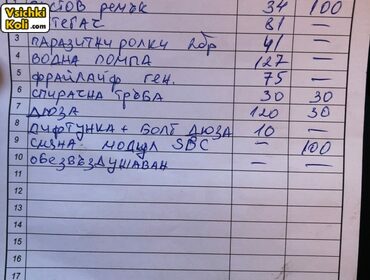 Vsichki
Koli.com
ПИСТОВ РЕМЪК 34 100
ОБТЕГАЧ 81 —
3 ПАРАЗИТНИ РОЛКИ 2бр 41 —
4 ВОДНА ПОМПА 127 —
5 ФРАЙЛАЙФ ГЕН. 75 —
6 СПИРАЧНА ТРЪБА 30 30
7 ДЮЗА 120 30
8 ЩИФТУНКА + БОЛТ ДЮЗА 10 —
9 СМЯНА МОДУЛ SBC — 100
10 ОБЕЗВЪЗДУШАВАН — —
11
12
13
14
15
16
17